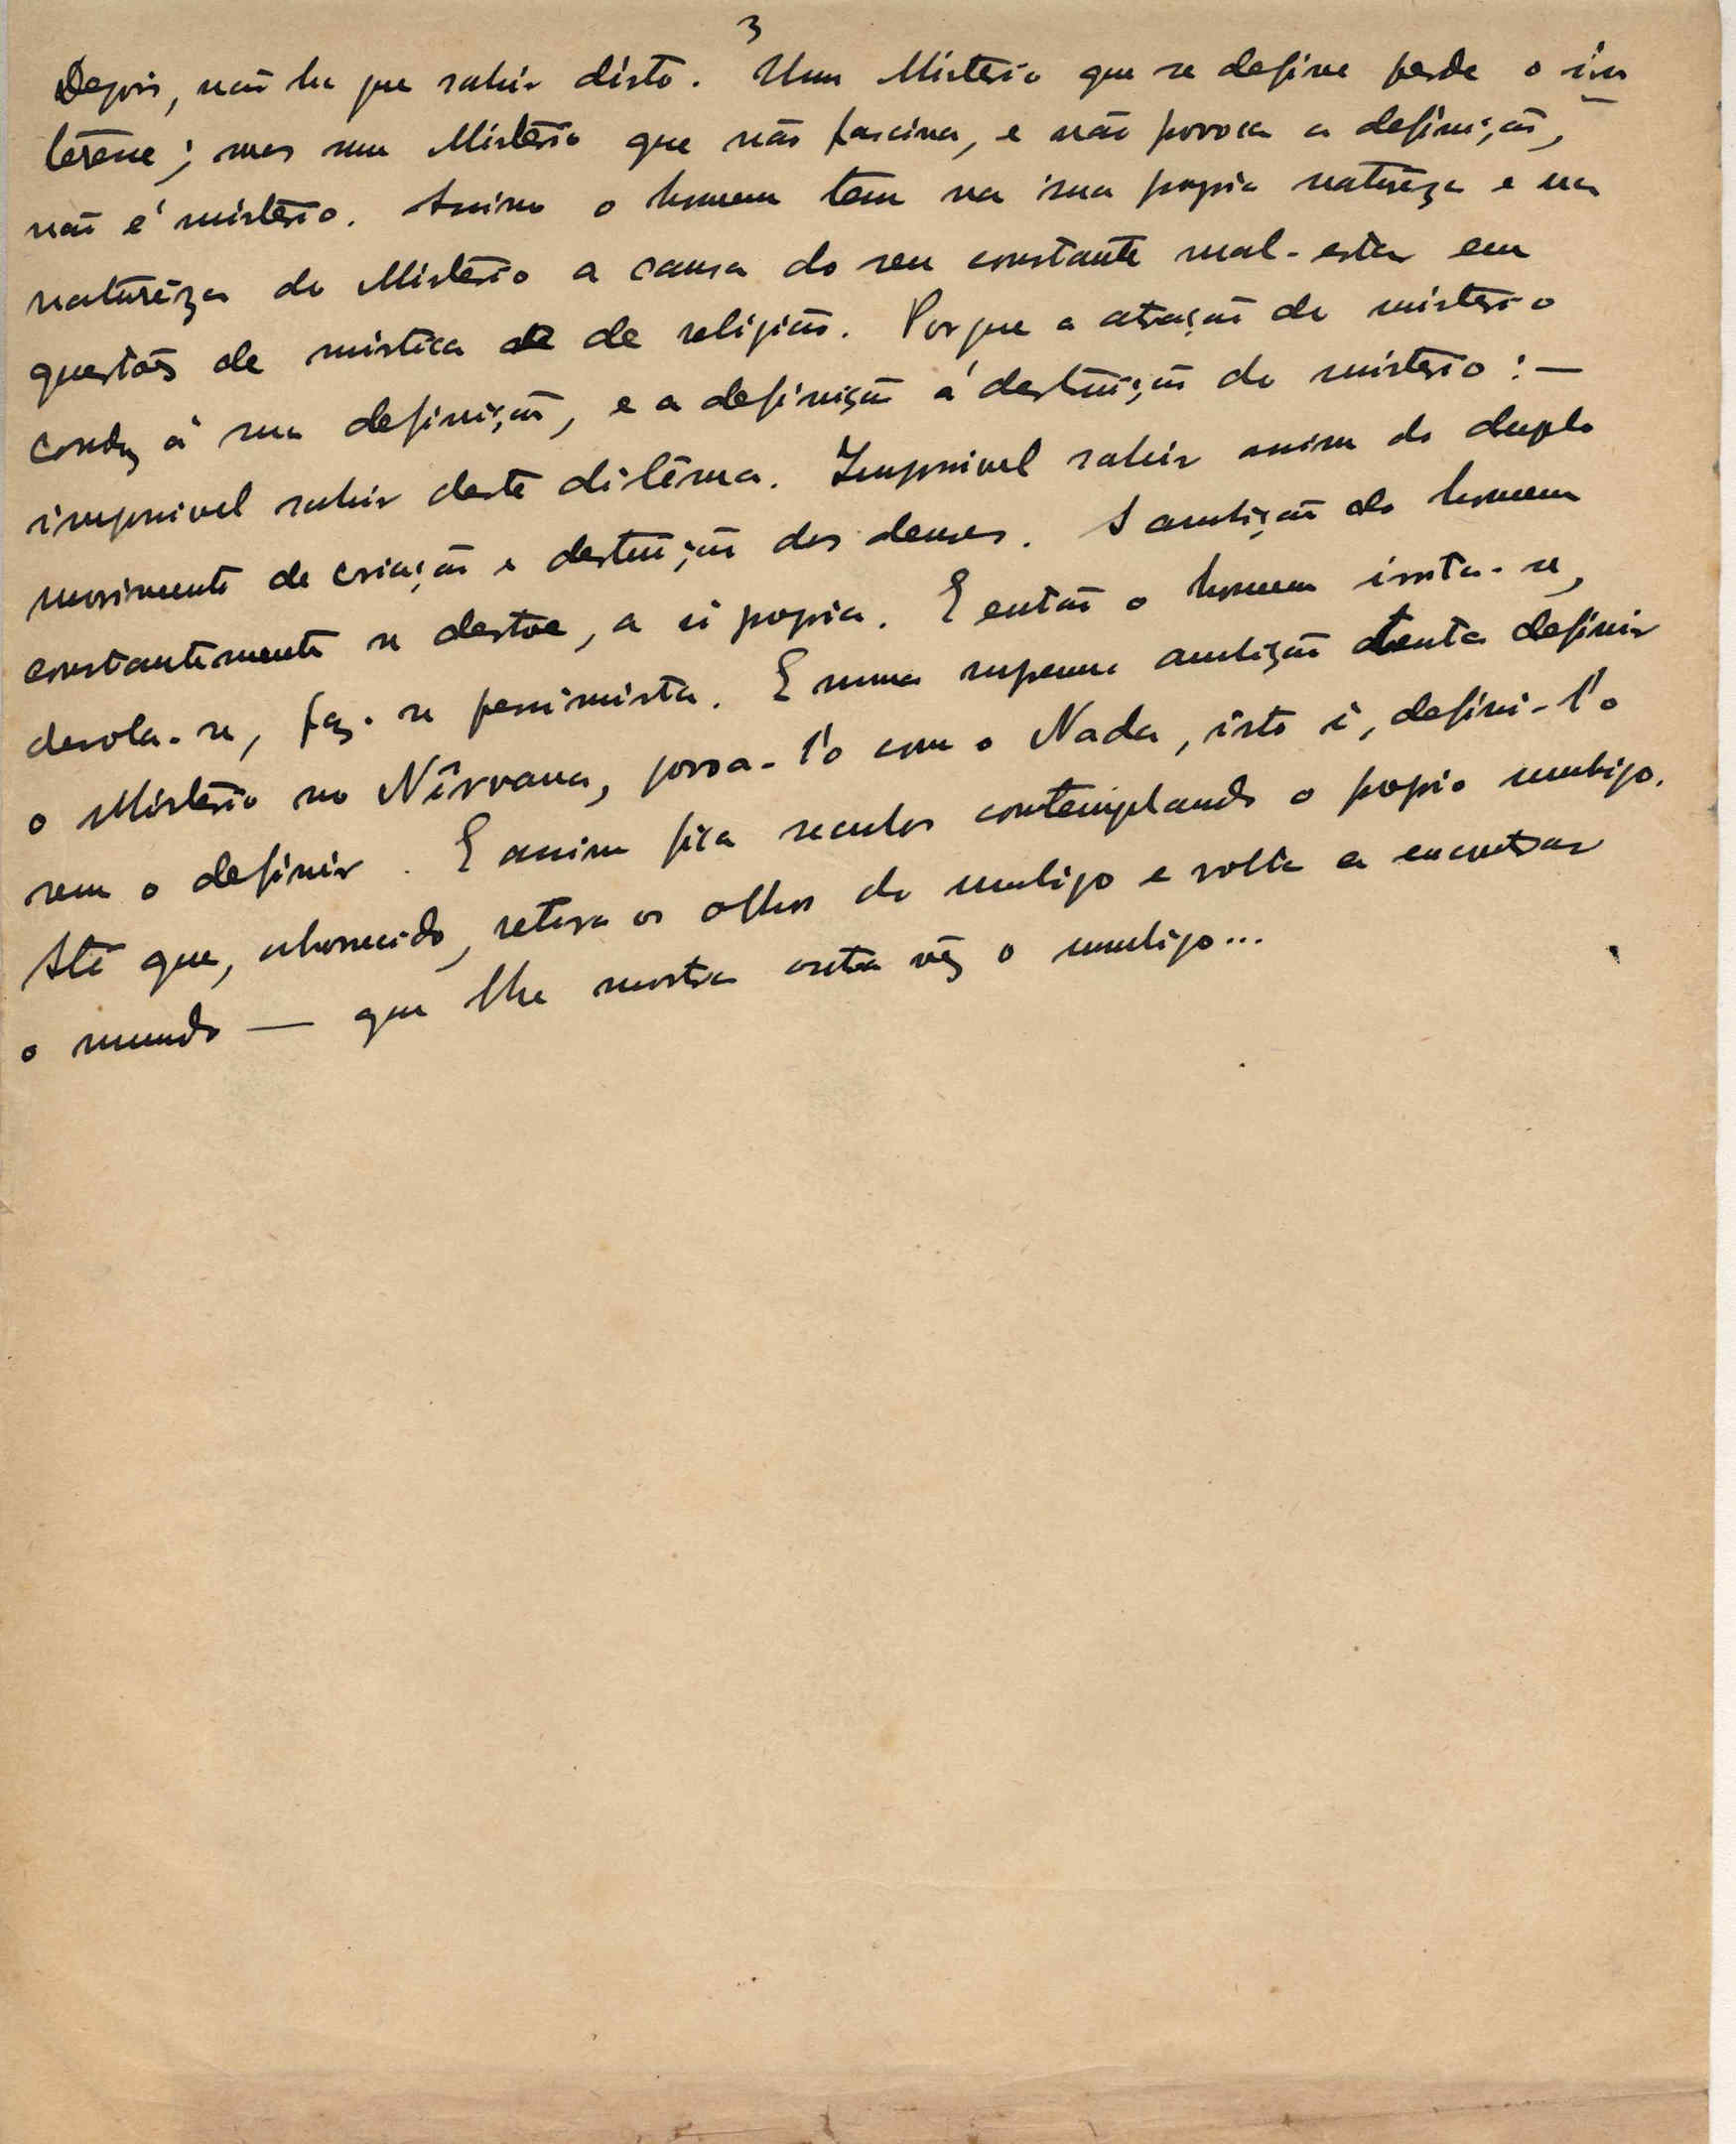 3
Depois, não ha que sahir disto. Um Mistério que se define perde o in
terêsse; mas um Mistério que não fascina, e não provoca a definição,
não é mistério. Assim o homem tem na sua propria naturêza e na
naturêza do Mistério a causa do seu constante mal-estar em
questões de mistica e de religião. Porque a atração do mistério
conduz á sua definição, e a definição á destruição do mistério: —
impossivel sahir deste dilêma. Impossivel sahir assim do duplo
movimento de criação e destruição dos deuses. A ambição do homem
constantemente se destroe, a si propria. E então o homem irrita-se,
desola-se, faz-se pessimista. E numa suprema ambição tenta definir
o Mistério no Nirvana, povoa-l'o com o Nada, isto é, defini-l'o
sem o definir. E assim fica seculos contemplando o proprio umbigo.
Até que, aborrecido, retira os olhos do umbigo e volta a encontrar
o mundo — que lhe mostra outra vêz o umbigo...